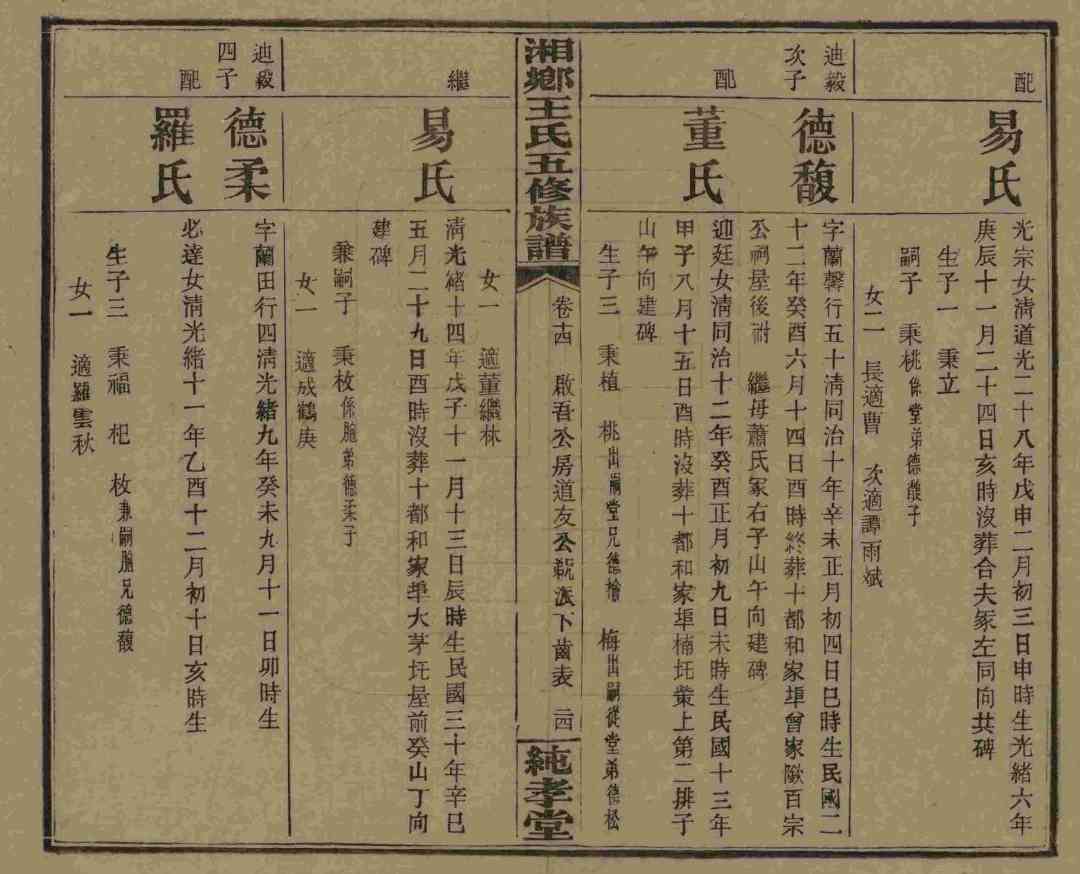 配
易氏
光宗女清道光二十八年戊申二月初三日申時生光緒六年
庚辰十一月二十四日亥時沒葬合夫冢左同向共碑
生子一　秉立
嗣子　秉桃係堂弟德馥子
女二　長適曹　次適譚雨斌
迪毅
次子
德馥
字蘭馨行五十清同治十年辛未正月初四日巳時生民國二
十二年癸酉六月十四日酉時終葬十都和家埠曾家歐百宗
公祠屋後祔　繼母蕭氏冢右子山午向建碑
配
董氏
迎廷女清同治十二年癸酉正月初九日未時生民國十三年
甲子八月十五日酉時沒葬十都和家埠楠圫上第二排子
山午向建碑
生子三　秉植　桃出嗣堂兄德檜　梅出嗣從堂弟德松
湘鄉王氏五修族譜
卷十四　啟吾公房道友公派下齒表　二四
純孝堂
女一　適董繼林
繼
易氏
清光緒十四年戊子十一月十三日辰時生民國三十年辛巳
五月二十九日酉時沒葬十都和家埠大茅圫屋前癸山丁向
建碑
兼嗣子　秉枚係胞弟德柔子
女一　適成鶴庚
迪毅
四子
德柔
字蘭田行四清光緒九年癸未九月十一日卯時生
配
羅氏
必達女清光緒十一年乙酉十二月初十日亥時生
生子三　秉福　杞　枚兼嗣胞兄德馥
女一　適羅雲秋